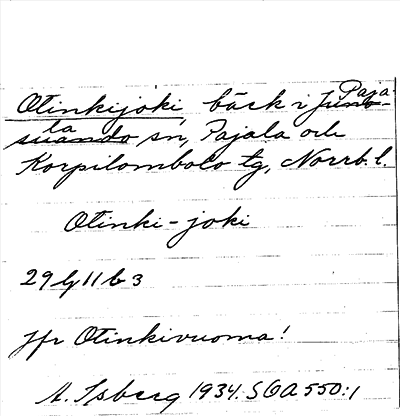 Otinkijoki, bäck i Juno- Paja-
suando la sn, Pajala och
Korpilombolo tg, Norrb. l.
Otinki-joki
29 g 11 b 3
Jfr Otinkivuoma!
A. Isberg 1934. SOA 550:1